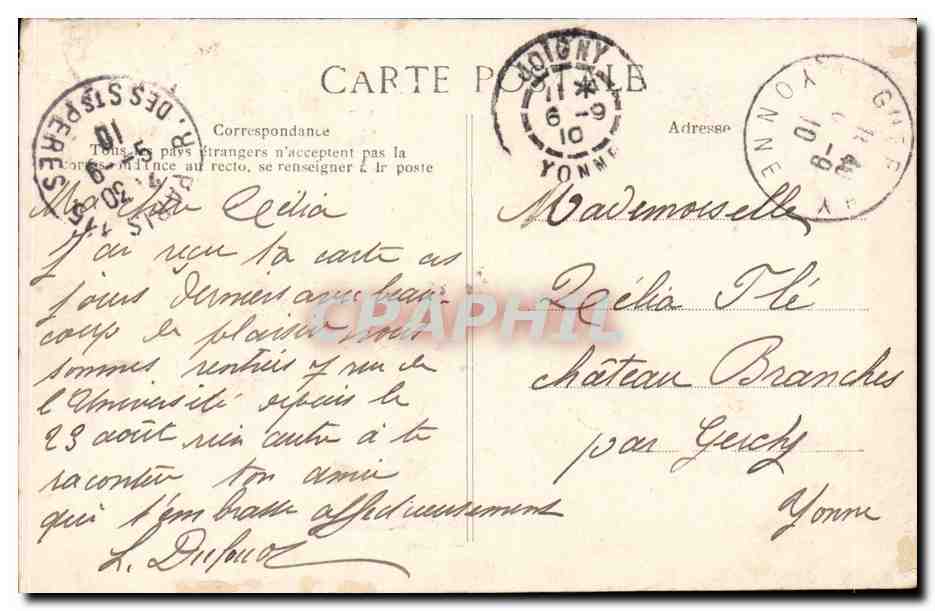 CARTE POSTALE
Correspondance
Tous les pays étrangers n'acceptent pas la
correspondance au recto, se renseigner à la poste
Ma chère Zélia
J'ai reçu ta carte ces
jours derniers avec beau-
coup de plaisir nous
sommes rentrés 7 rue de
l'Université depuis le
23 août rien autre à te
raconter ton amie
qui t'embrasse affectueusement
L. Dufour
Adresse
Mademoiselle
Zélia Flé
château Branches
par Guerchy
Yonne
PARIS 15 R. DES Sts PERES
30
5-9
10
JOIGNY
11 *
6 -9
10
YONNE
GUERCHY
6-9
10
YONNE
CRAPHIL